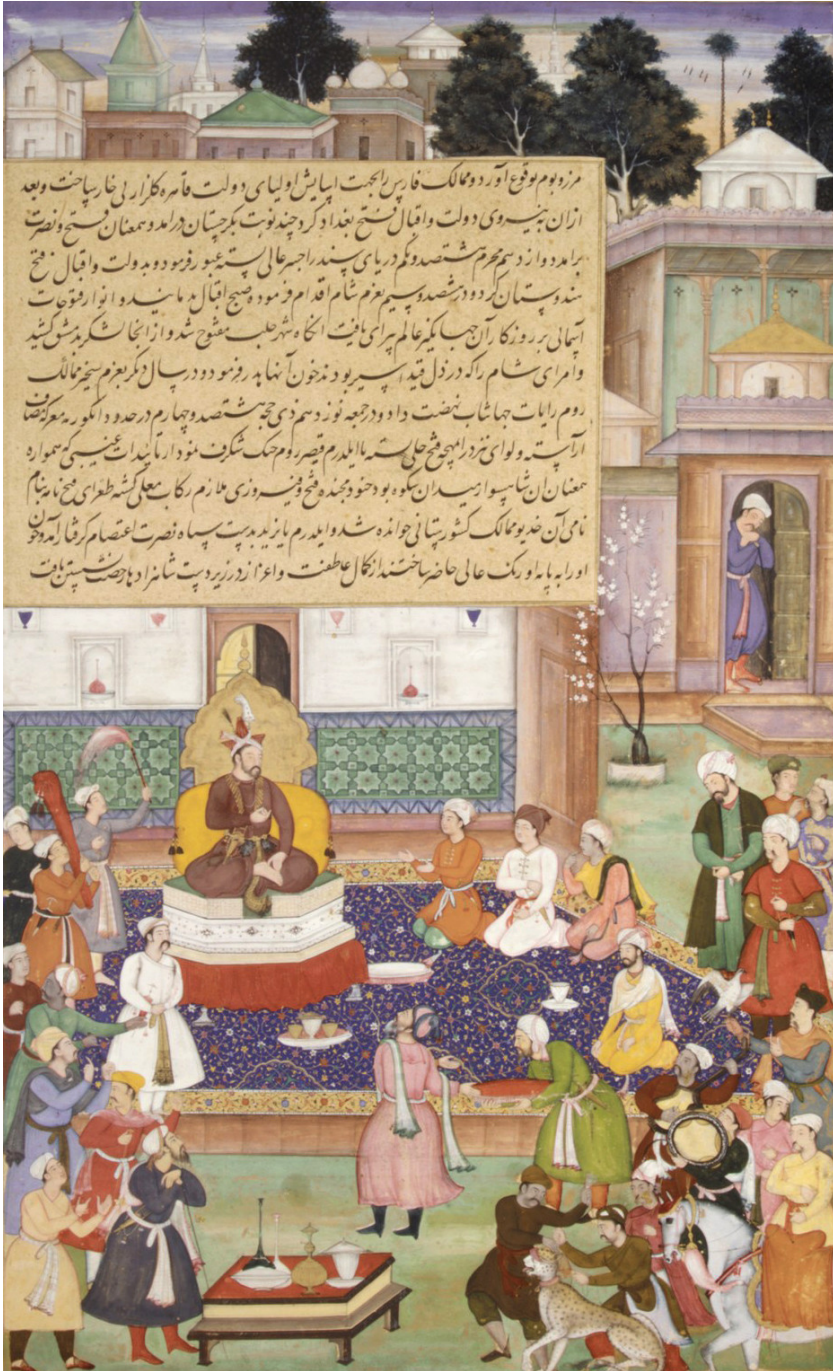 مرز و بوم بوقوع آورد و ممالک فارس را بجهت آسایش اولیای دولت قاهره گلزار بی خار ساخت و بعد
ازان به نیروی دولت و اقبال فتح بغداد کرد چند نوبت بگرجستان درآمد و همعنان فتح و نصرت
برآمد دوازدهم محرم هشتصد و یکم دریای سند را جسر عالی بسته عبور فرمود و بدولت و اقبال فتح
هندوستان کرد و در هشتصد و سیم بعزم شام اقدام فرموده صبح اقبال بدمانید و انوار فتوحات
آسمانی بر روزگار آن جهانگیر عالم پیرای تافت آنگاه شهر حلب مفتوح شد و از انجا لشکر بدمشق کشید
و امرای شام را که در ذل قید اسیر بودند خون آنها هدر فرمود و در سال دیگر بعزم تسخیر ممالک
روم رایات جهانتاب نهضت داد و در جمعه نوزدهم ذی حجه هشتصد و چهارم در حدود انگوریه معرکه مصاف
آراسته و لوای فتح بسته با ایلدرم قیصر روم جنگ شگرف نمود از تاییدات غیبی که همواره
همعنان آن شاهسوار میدان شکوه بود جنود مجنده فتح و فیروزی ملازم رکاب معلی گشته طغرای فتح نامه بنام
نامی آن خدیو ممالک کشورستانی خوانده شد و ایلدرم بایزید بدست سپاه نصرت اعتصام گرفتار آمد و چون
او را به پایه اورنگ عالی حاضر ساختند از کمال عاطفت و اعزاز در زیر دست شاهزادها رخصت نشستن یافت